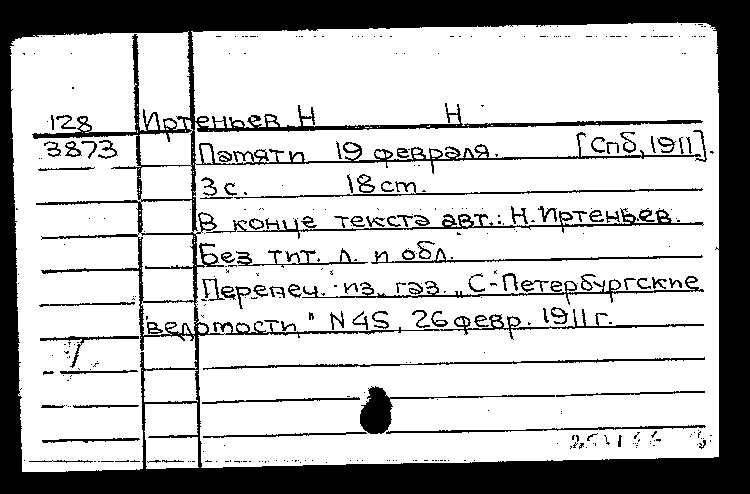 128 Иртеньев Н Н
3873 Памяти 19 февраля. [Спб, 1911].
3 с. 18 ст.
В конце текста авт.: Н. Иртеньев.
Без тит. л. и обл.
Перепеч. из газ. „С-Петербургские
ведомости" N 45, 26 февр. 1911 г.